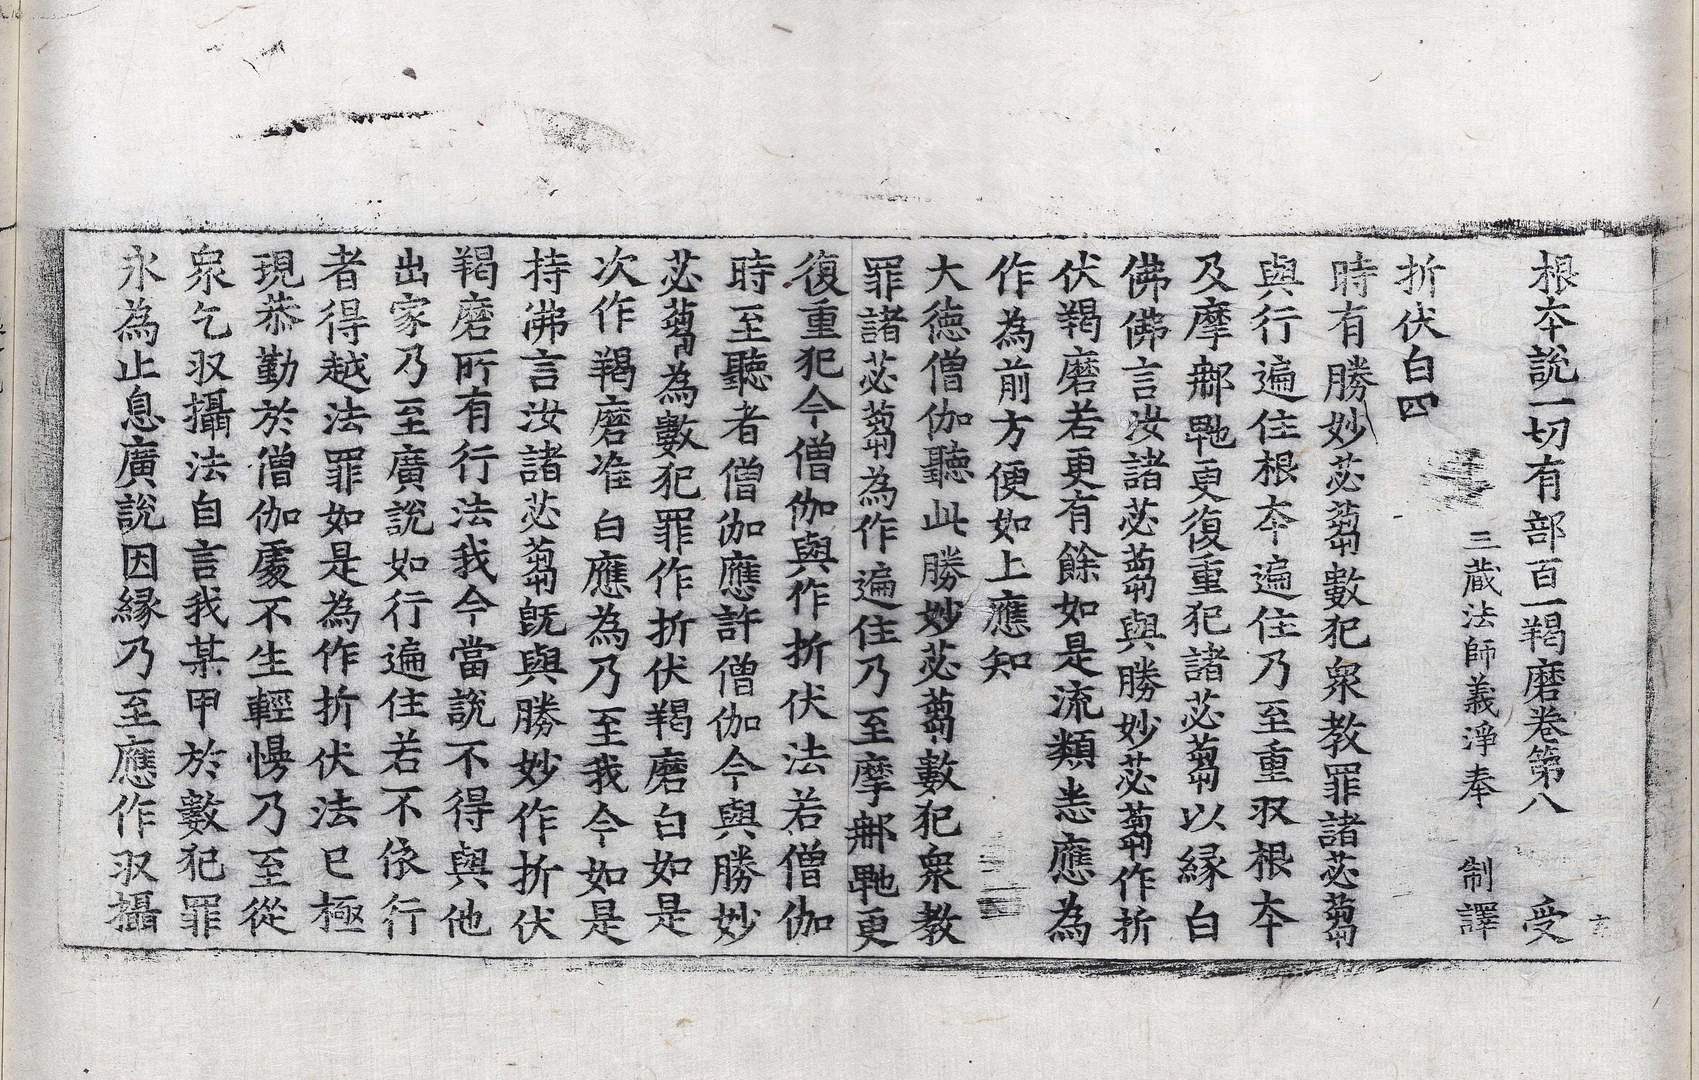 根本說一切有部百一羯磨卷第八 受
三藏法師義淨奉 制譯
折伏白四
時有勝妙苾蒭數犯衆教罪諸苾蒭
與行遍住根本遍住乃至重收根本
及摩㮈㲜更復重犯諸苾蒭以緣白
佛佛言汝諸苾蒭與勝妙苾蒭作折
伏羯磨若更有餘如是流類悉應為
作為前方便如上應知
大德僧伽聽此勝妙苾蒭數犯衆教
罪諸苾蒭為作遍住乃至摩㮈㲜更
復重犯今僧伽與作折伏法若僧伽
時至聽者僧伽應許僧伽今與勝妙
苾蒭為數犯罪作折伏羯磨白如是
次作羯磨准白應為乃至我今如是
持佛言汝諸苾蒭旣與勝妙作折伏
羯磨所有行法我今當說不得與他
出家乃至廣說如行遍住若不依行
者得越法罪如是為作折伏法已極
現恭勤於僧伽處不生輕慢乃至從
衆乞收攝法自言我某甲於數犯罪
永為止息廣說因緣乃至應作收攝